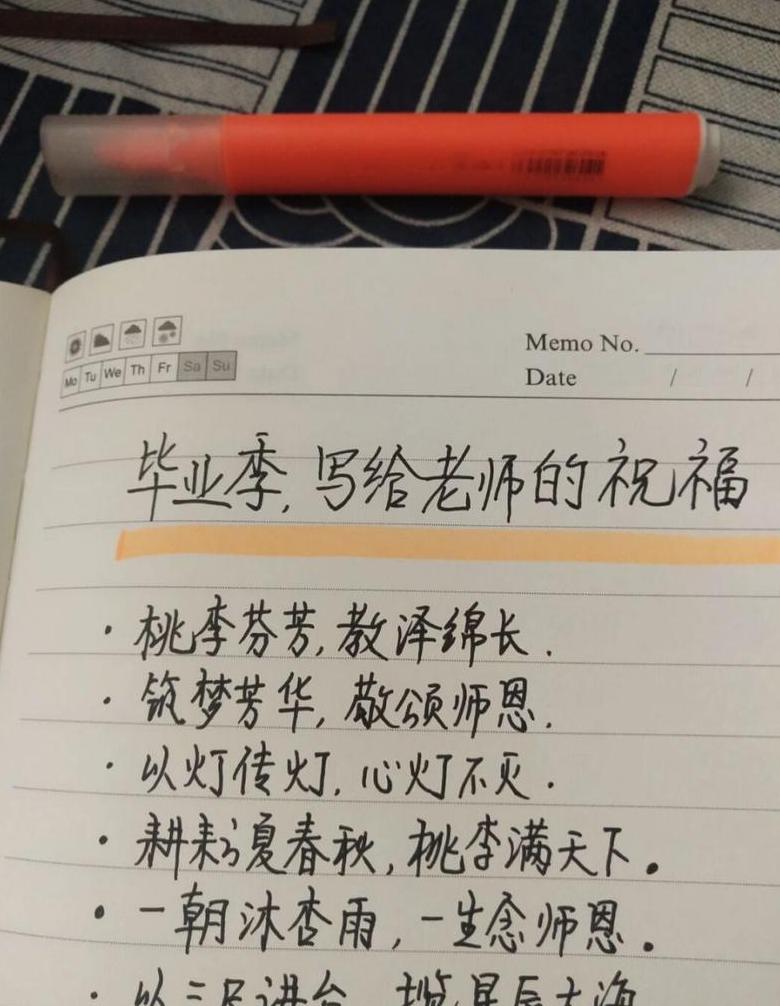 Memo No.
Mo Tu We Th Fr Sa Su
Date / /
毕业季,写给老师的祝福
· 桃李芬芳,教泽绵长.
· 筑梦芳华,敬颂师恩.
· 以灯传灯,心灯不灭.
· 耕耘夏春秋,桃李满天下。
· 一朝沐杏雨,一生念师恩。
· 以三尺讲台,揽星辰大海